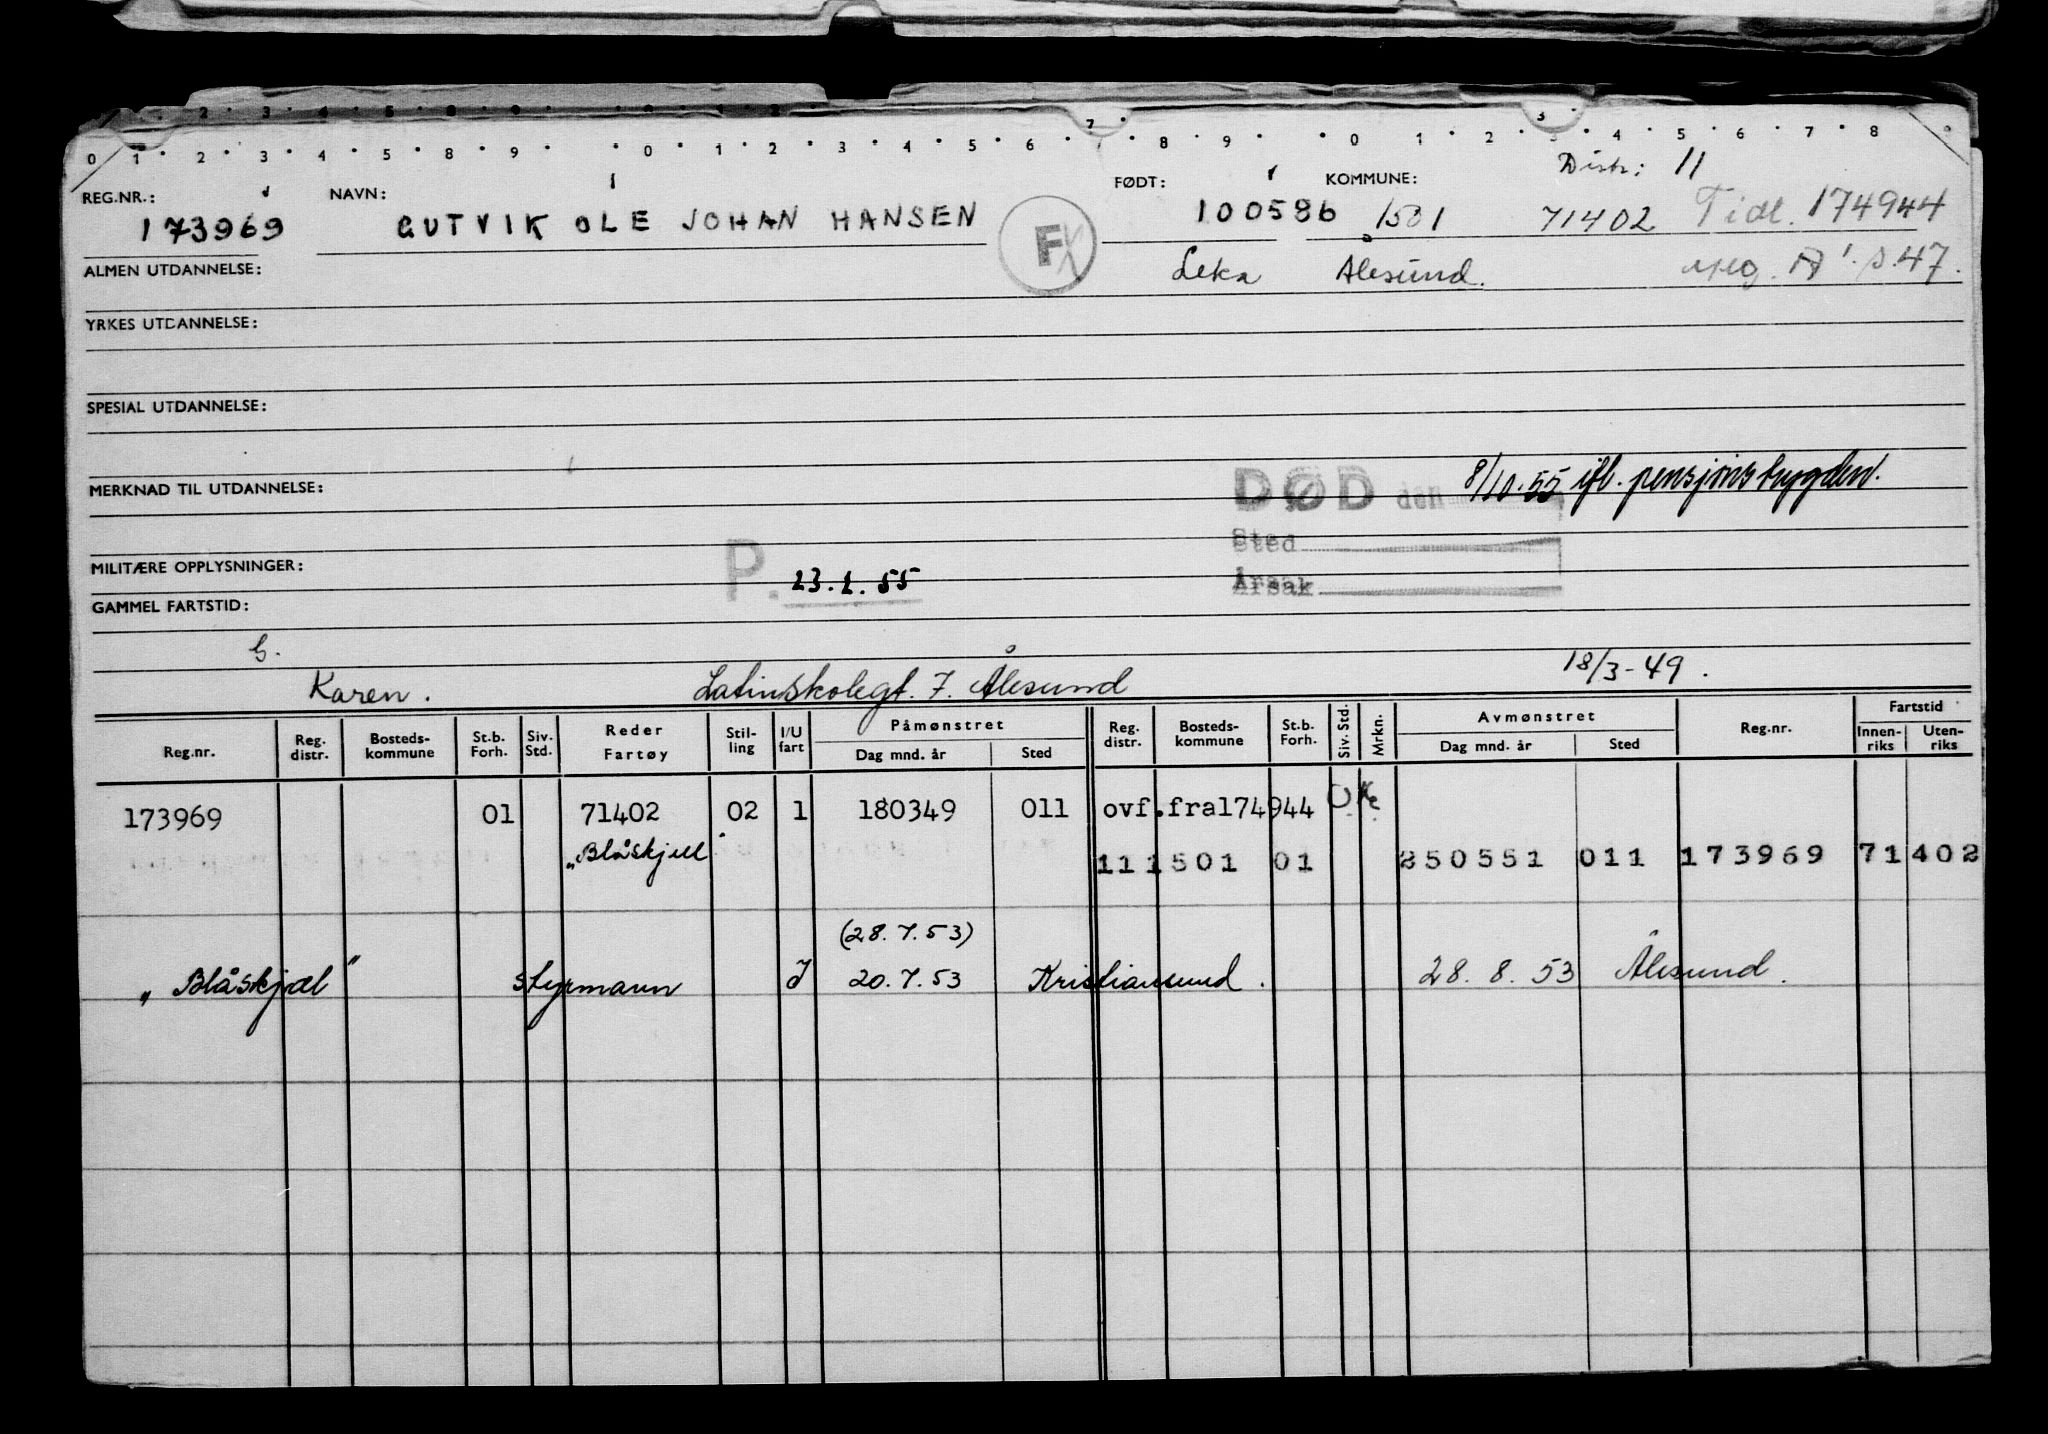 0 1 2 3 4 5 6 8 9 0 1 2 3 4 5 6 7 8 9 0 1 2 3 4 5 6 7 8 9
Distr: 11
REG.NR.: NAVN: FØDT: KOMMUNE:
173969 GUTVIK OLE JOHAN HANSEN F 100586 1501 71402 Tidl. 174944
ALMEN UTDANNELSE: Leka Ålesund. s.47.
YRKES UTDANNELSE:
SPESIAL UTDANNELSE:
MERKNAD TIL UTDANNELSE: DØD den 8/10.55 ifl. pensjonstrygden.
Sted
MILITÆRE OPPLYSNINGER: P. 23.1.55 Årsak
GAMMEL FARTSTID:
G.
Karen. Latinskolegt. 7. Ålesund 18/3-49.
Reg.nr. Reg. distr. Bosteds-kommune St.b. Forh. Siv. Std. Reder Fartøy Stil-ling I/U fart Påmønstret Dag mnd. år Sted Reg. distr. Bosteds-kommune St.b. Forh. Siv. Std. Mrkn. Avmønstret Dag mnd. år Sted Reg.nr. Fartstid Innen-riks Uten-riks
173969 01 71402 02 1 180349 011 ovf.fra174944
"Blåskjell" 111501 01 250551 011 173969 71402
(28.7.53)
"Blåskjæl" styrmann I 20.7.53 Kristiansund. 28.8.53 Ålesund.